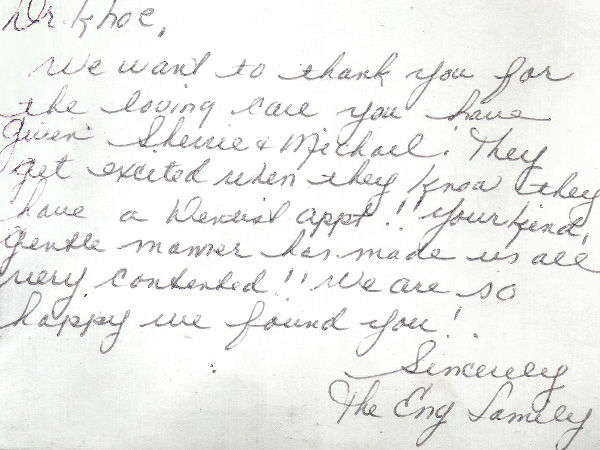 Dr. Khoe,
We want to thank you for
the loving care you have
given Sherrie & Michael. They
get excited when they know they
have a Dentist appt!! Your kind,
gentle manner has made us all
very contented!! We are so
happy we found you!
Sincerely
The Eng Family